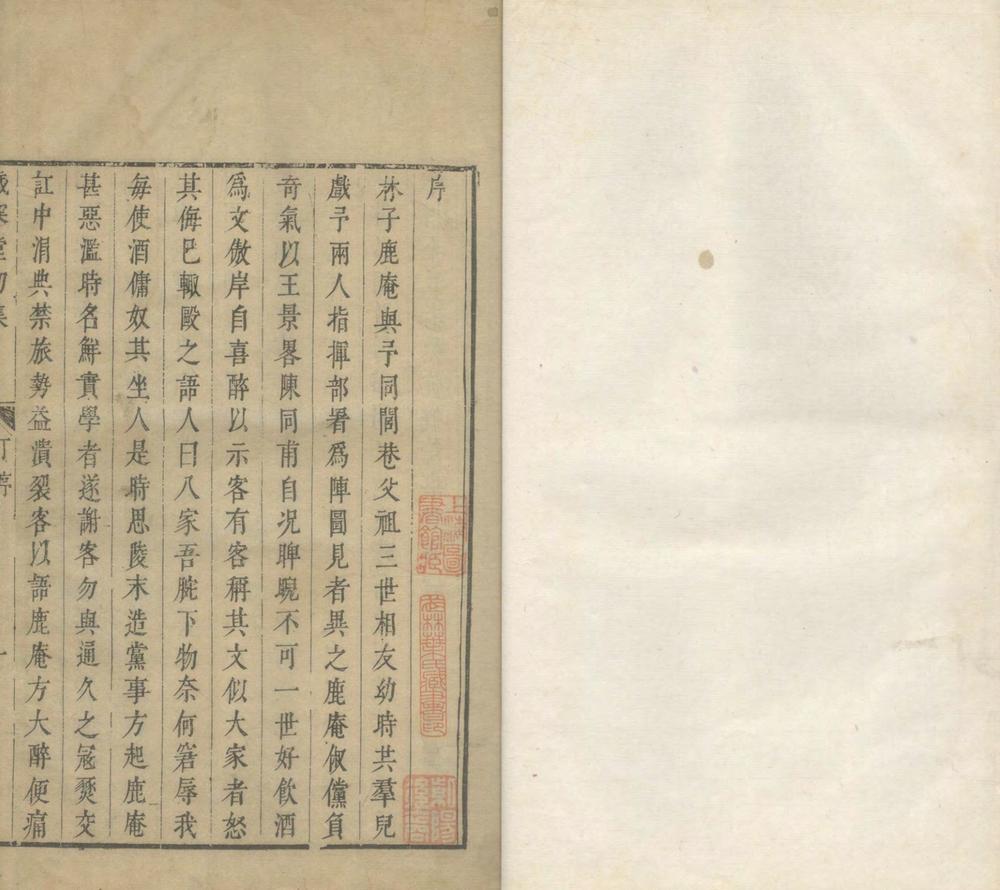 序
林子鹿庵與予同閭巷父祖三世相友幼時共羣兒
戲予兩人指揮部署爲陣圖見者異之鹿庵俶儻負
奇氣以王景畧陳同甫自况睥睨不可一世好飲酒
爲文傲岸自喜醉以示客有客稱其文似大家者怒
其侮己輙毆之語人曰八家吾胯下物奈何窘辱我
每使酒傭奴其坐人是時思陵末造黨事方起鹿庵
甚惡濫時名鮮實學者遂謝客勿與通久之冦燹交
訌中涓典禁旅勢益潰裂客以語鹿庵方大醉便痛
歲寒堂初集 丁序 一
上海圖書館藏
武林葉氏藏書印